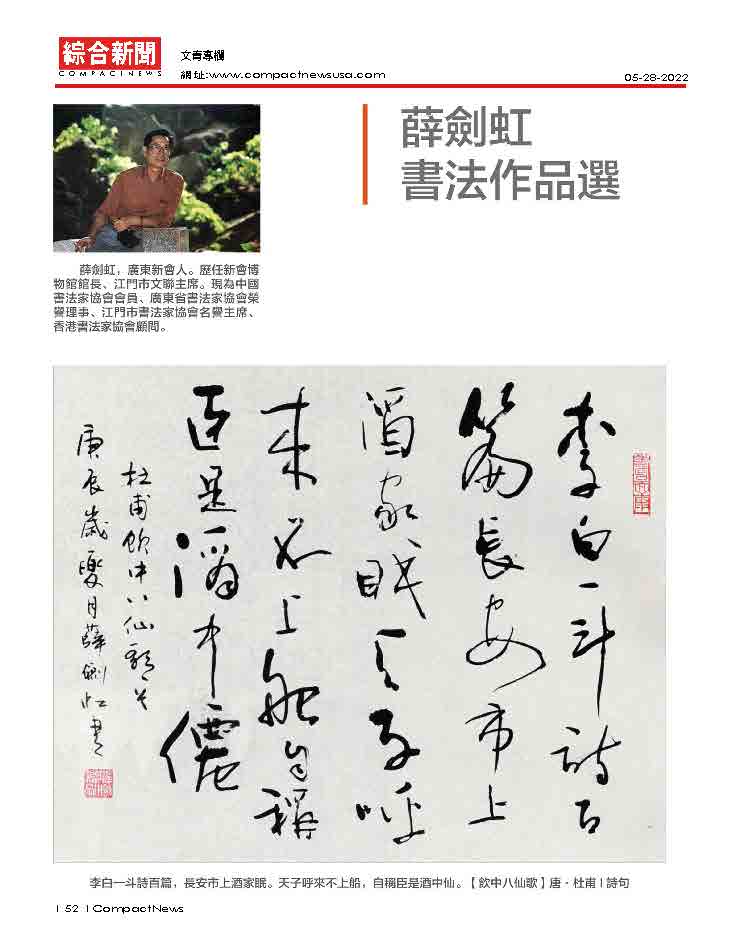 綜合新聞
COMPACTNEWS
文青專欄
網址:www.compactnewsusa.com
05-28-2022
薛劍虹
書法作品選
薛劍虹，廣東新會人。歷任新會博
物館館長、江門市文聯主席。現為中國
書法家協會會員、廣東省書法家協會榮
譽理事、江門市書法家協會名譽主席、
香港書法家協會顧問。
李白一斗詩百
篇長安市上
酒家眠天子呼
來不上船自稱
臣是酒中僊
杜甫飲中八仙歌
庚辰歲夏月薛劍虹書
李白一斗詩百篇，長安市上酒家眠。天子呼來不上船，自稱臣是酒中仙。【飲中八仙歌】唐·杜甫 | 詩句
| 52 | CompactNews